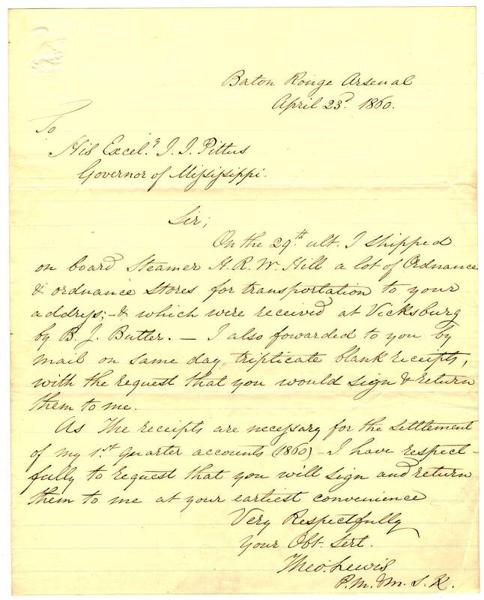 Baton Rouge Arsenal
April 23d. 1860.
To
His Excely. J. J. Pettus
Governor of Missisippi.
Sir;
On the 29th ult. I shipped
on board Steamer H. R. W. Hill a lot of Ordnance
& ordnance Stores for transportation to your
address;- & which were received at Vicksburg
by B. J. Butler. — I also fowarded to you by
mail on same day, triplicate blank receipts,
with the request that you would sign & return
them to me.
As the receipts are necessary for the settlement
of my 1st quarter accounts (1860) - I have respect-
fully to request that you will sign and return
them to me at your earliest convenience
Very Respectfully
Your Obt. Sert.
Theo: Lewis
P. M. & M. S. K.